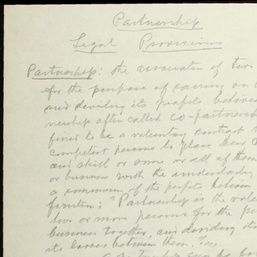 Partnership
Legal Provisions
Partnership: the association of two
for the purpose of carrying on
and dividing its profits between
nership often called co-partnership
fined to be a voluntary contract
competent persons to place their
and skill or some or all of them
or business with the understanding
a communion of the profits between
"Partnership is the
two or more persons for the
business together, and dividing its
its losses between them."